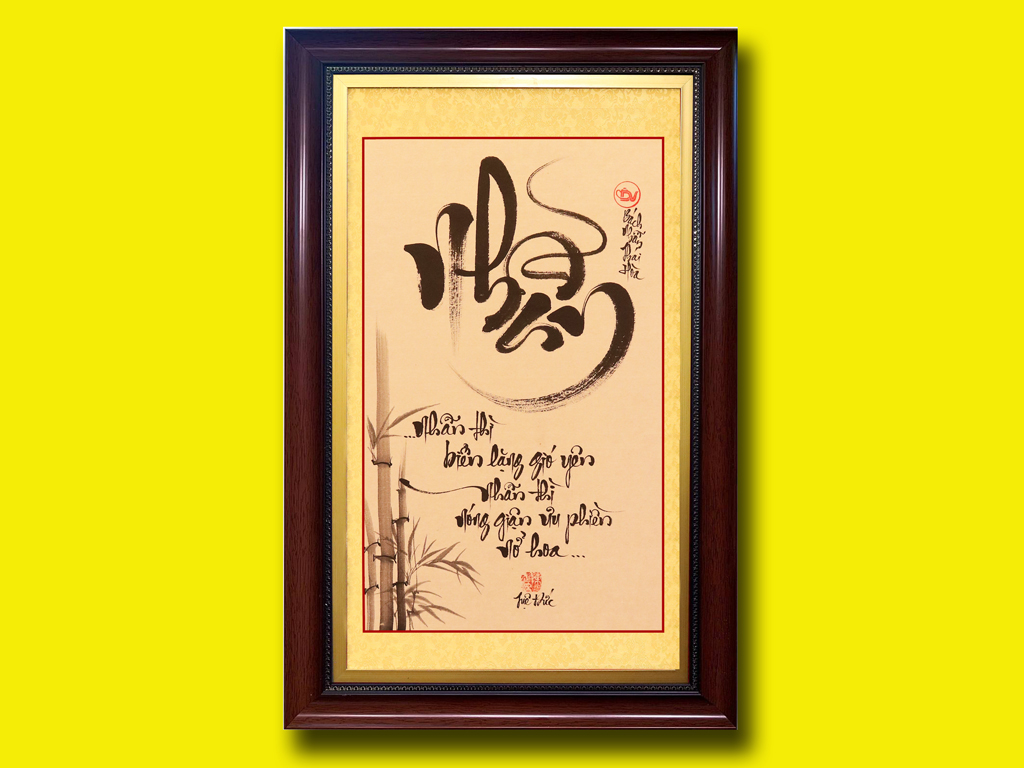 Nhẫn
Bách
Nhẫn
Thái
Hòa
...Nhẫn thì
biển lặng gió yên
Nhẫn thì
nóng giận ưu phiền
nở hoa...
Tuệ thức